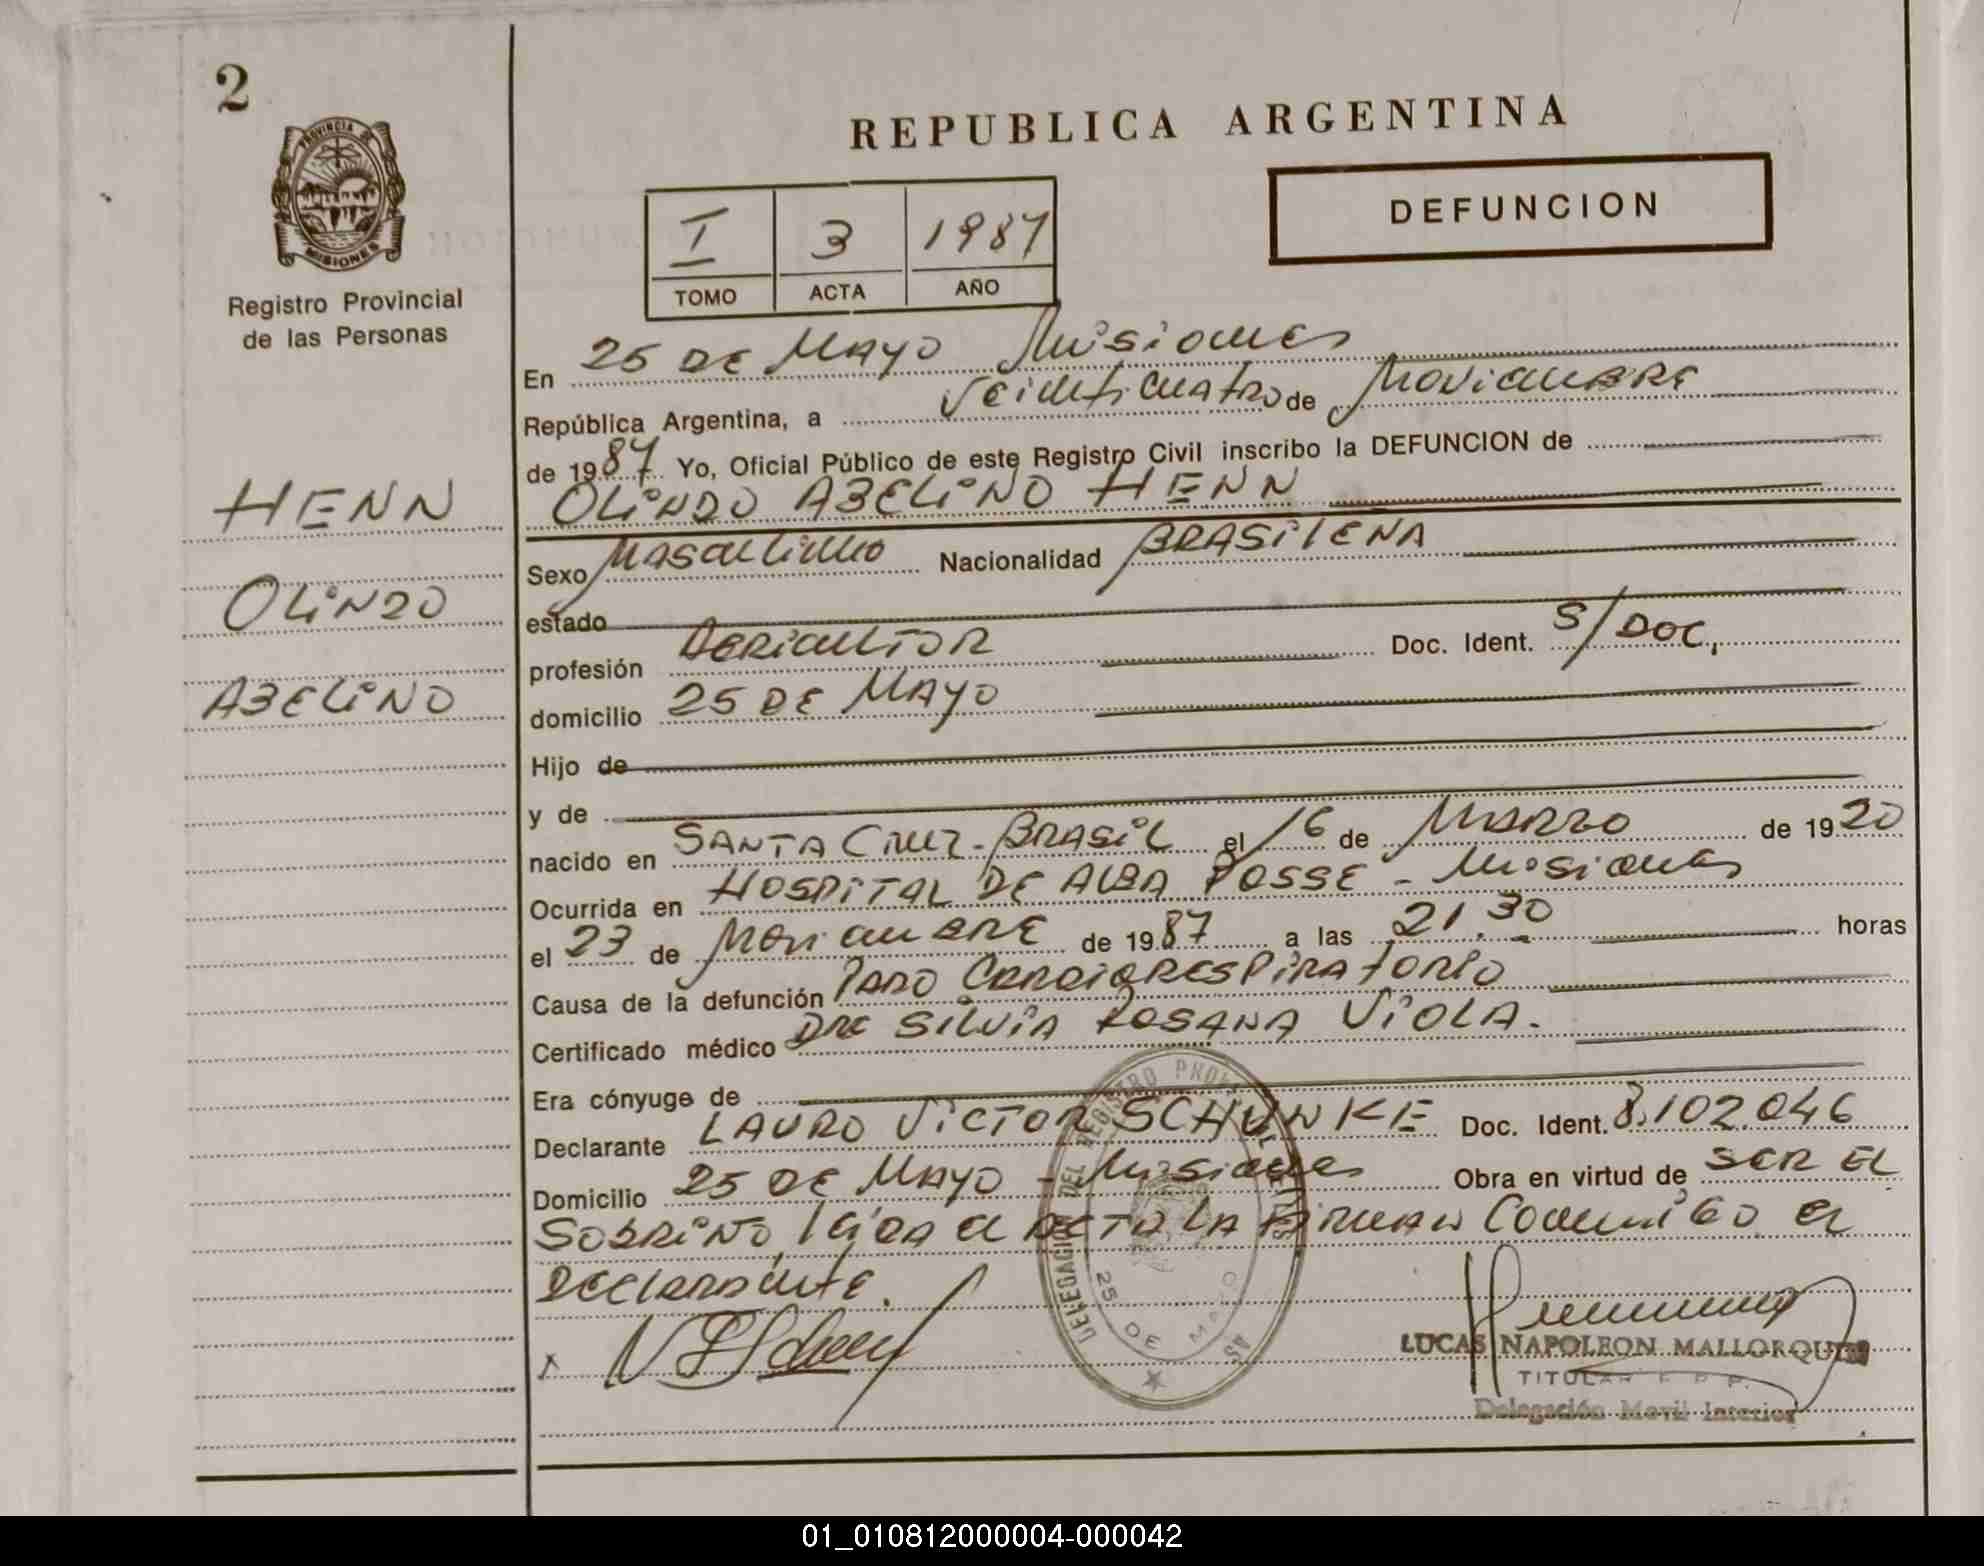 2
PROVINCIA DE
MISIONES
Registro Provincial
de las Personas
HENN
OLINDO
ABELINO
REPUBLICA ARGENTINA
I 3 1987
TOMO ACTA AÑO
DEFUNCION
En 25 DE MAYO Misiones
República Argentina, a Veinticuatro de NOVIEMBRE
de 1987 Yo, Oficial Público de este Registro Civil inscribo la DEFUNCION de
OLINDO ABELINO HENN
Sexo Masculino Nacionalidad BRASILENA
estado
profesión AGRICULTOR Doc. Ident. S/DOC,
domicilio 25 DE MAYO
Hijo de
y de
nacido en SANTA CRUZ - BRASIL el 16 de MARZO de 1920
Ocurrida en HOSPITAL DE ALBA POSSE - Misiones
el 23 de NOVIEMBRE de 1987 a las 21,30 horas
Causa de la defunción PARO CARDIORESPIRATORIO
Certificado médico DRA SILVIA ROSANA VIOLA.
Era cónyuge de
Declarante LAURO VICTOR SCHUNKE Doc. Ident. 8.102.046
Domicilio 25 DE MAYO - Misiones Obra en virtud de SER EL
SOBRINO, leida el ACTA LA FIRMAN Conmigo el
DECLARANTE.
DELEGACION DEL REGISTRO PROVINCIAL DE LAS
25 DE MAYO
LUCAS NAPOLEON MALLORQUIN
TITULAR R. P. P.
Delegación Movil Interior
01_010812000004-000042